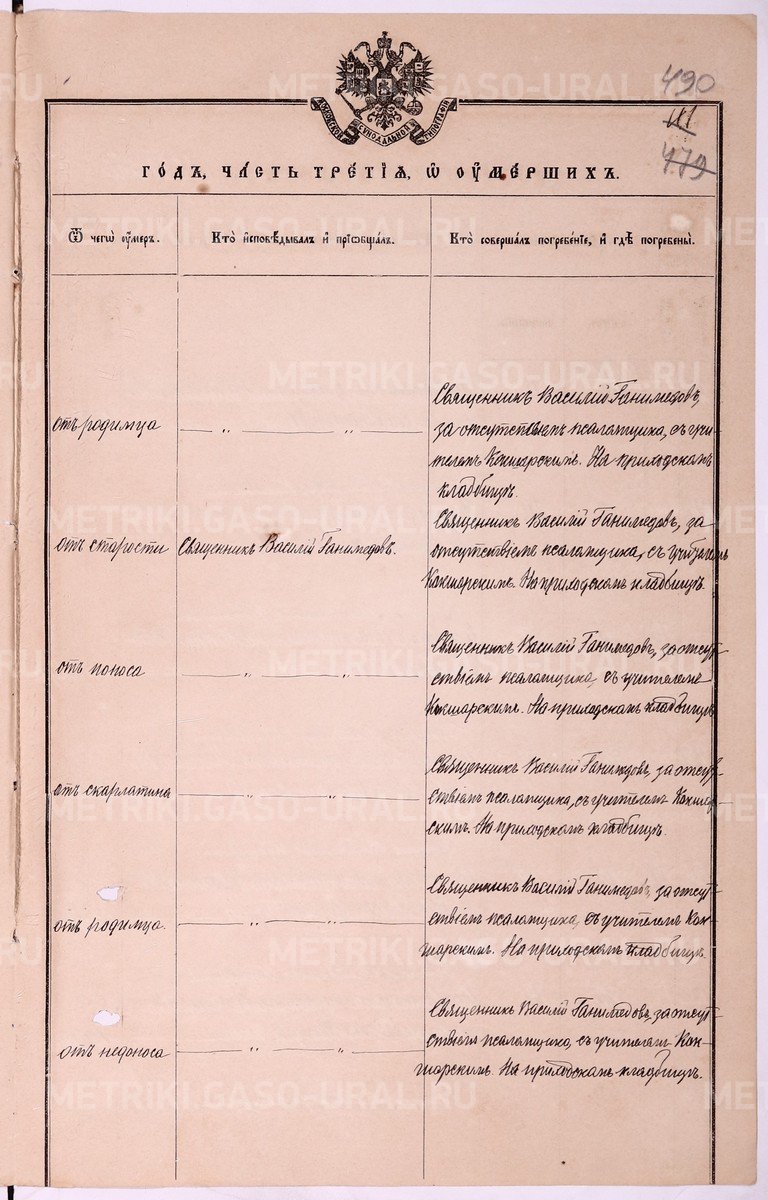 490
МОСКОВСКОЙ СѴНОДАЛЬНОЙ ТИПОГРАФІИ
141
479
ГОДЪ, ЧАСТЬ ТРЕТІѦ, Ѡ ОУМЕРШИХЪ.
Ѿ чегѡ оумеръ.
Кто исповѣдывалъ и пріѡбщалъ.
Кто совершалъ погребеніе, и гдѣ погребены.
отъ родимца
— „ — „ —
Священникъ Василій Ганимедовъ,
за отсутствіемъ псаломщика, съ учи-
телемъ Кокшарскимъ. На приходскомъ
кладбищѣ.
отъ старости
Священникъ Василій Ганимедовъ.
Священникъ Василій Ганимедовъ, за
отсутствіемъ псаломщика, съ учителемъ
Кокшарскимъ. На приходскомъ кладбищѣ.
отъ поноса
— „ — „ —
Священникъ Василій Ганимедовъ, за отсут-
ствіемъ псаломщика, съ учителемъ
Кокшарскимъ. На приходскомъ кладбищѣ
отъ скарлатина
— „ — „ —
Священникъ Василій Ганимедовъ, за отсут-
ствіемъ псаломщика, съ учителемъ Кокшар-
скимъ. На приходскомъ кладбищѣ.
отъ родимца.
— „ — „ —
Священникъ Василій Ганимедовъ, за отсут-
ствіемъ псаломщика, съ учителемъ Кок-
шарскимъ. На приходскомъ кладбищѣ.
отъ недоноса
— „ — „ —
Священникъ Василій Ганимедовъ, за отсут-
ствіемъ псаломщика, съ учителемъ Кок-
шарскимъ. На приходскомъ кладбищѣ.
METRIKI.GASO-URAL.RU